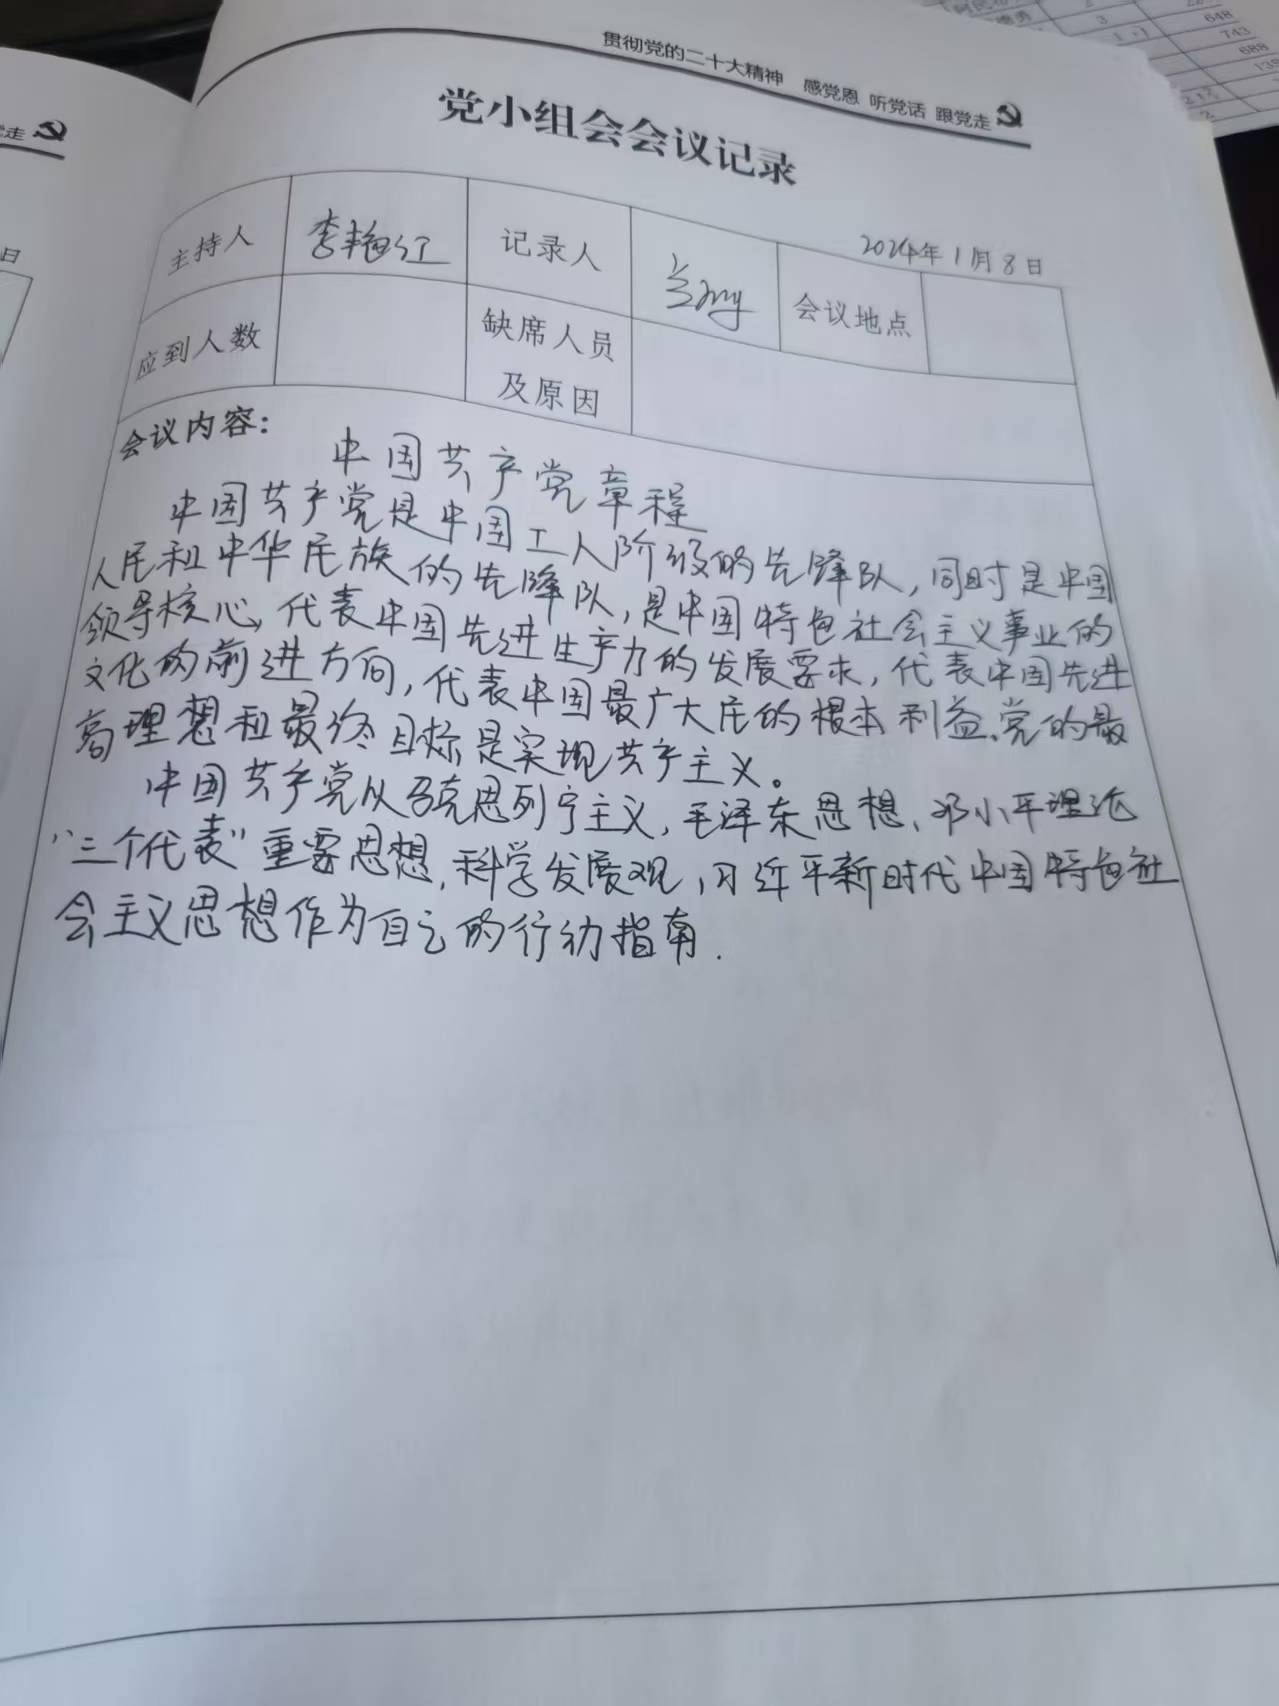 贯彻党的二十大精神 感党恩 听党话 跟党走
党小组会会议记录
2024年1月8日
主持人 李艳红 记录人 会议地点
应到人数 缺席人员及原因
会议内容：
中国共产党章程
中国共产党是中国工人阶级的先锋队，同时是中国
人民和中华民族的先锋队，是中国特色社会主义事业的
领导核心，代表中国先进生产力的发展要求，代表中国先进
文化的前进方向，代表中国最广大民的根本利益。党的最
高理想和最终目标是实现共产主义。
中国共产党从马克思列宁主义，毛泽东思想、邓小平理论
“三个代表”重要思想，科学发展观，习近平新时代中国特色社
会主义思想作为自己的行动指南.
走
日
648
743
688